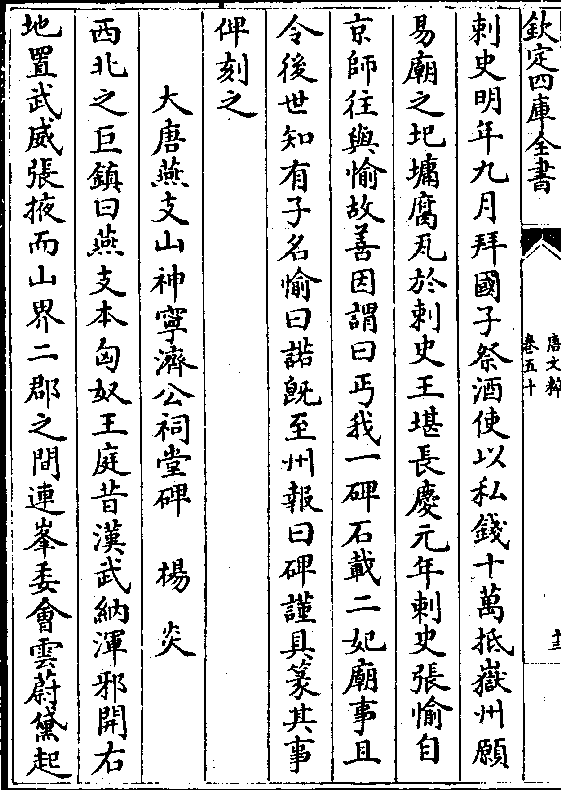 欽定四庫全書
唐文粹
卷五十
刺史明年九月拜國子祭酒使以私錢十萬抵嶽州願
易廟之圯墉腐瓦於刺史王堪長慶元年刺史張愉自
京師往與愉故善因謂曰丐我一碑石載二妃廟事且
令後世知有子名愉曰諾既至州報曰碑謹具篆其事
俾刻之
大唐燕支山神寧濟公祠堂碑　楊炎
西北之巨鎮曰燕支本匈奴王庭昔漢武納渾邪開右
地置武威張掖而山界二郡之間連峯委會雲蔚黛起